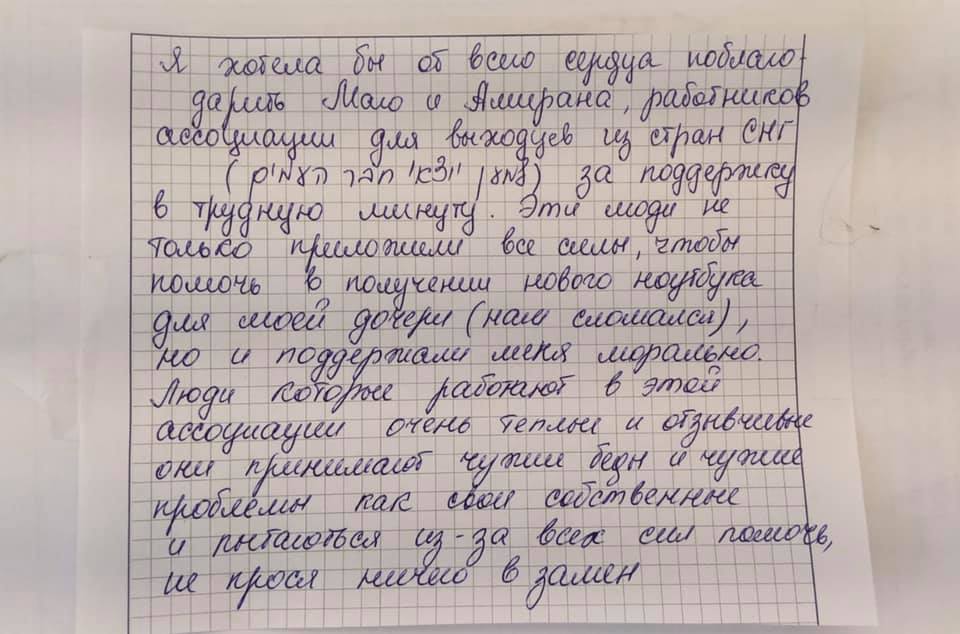 Я хотела бы от всего сердца поблаго-
дарить Маю и Амирана, работников
ассоциации для выходцев из стран СНГ
(עמותת יוצאי חבר העמים) за поддержку
в трудную минуту. Эти люди не
только приложили все силы, чтобы
помочь в получении нового ноутбука
для моей дочери (нам сломался),
но и поддержали меня морально.
Люди которые работают в этой
ассоциации очень теплые и отзывчивые
они принимают чужии беды и чужие
проблемы как свои собственные
и пытаються из-за всех сил помочь,
не прося ничего в замен